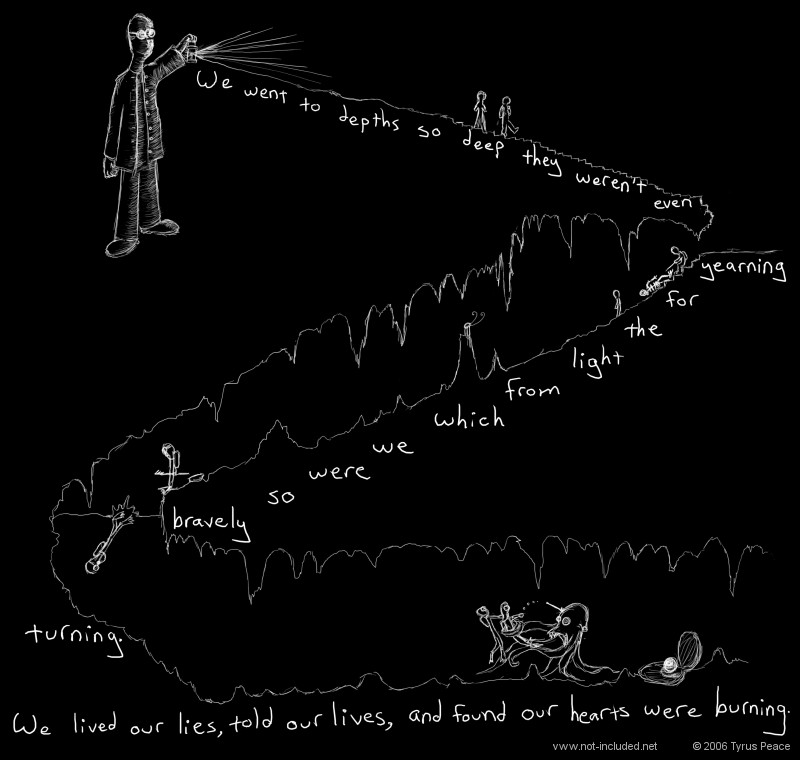 We went to depths so deep they weren't even
yearning
for
the
light
from
which
we
were
so
bravely
turning.
We lived our lies, told our lives, and found our hearts were burning.
www.not-included.net © 2006 Tyrus Peace